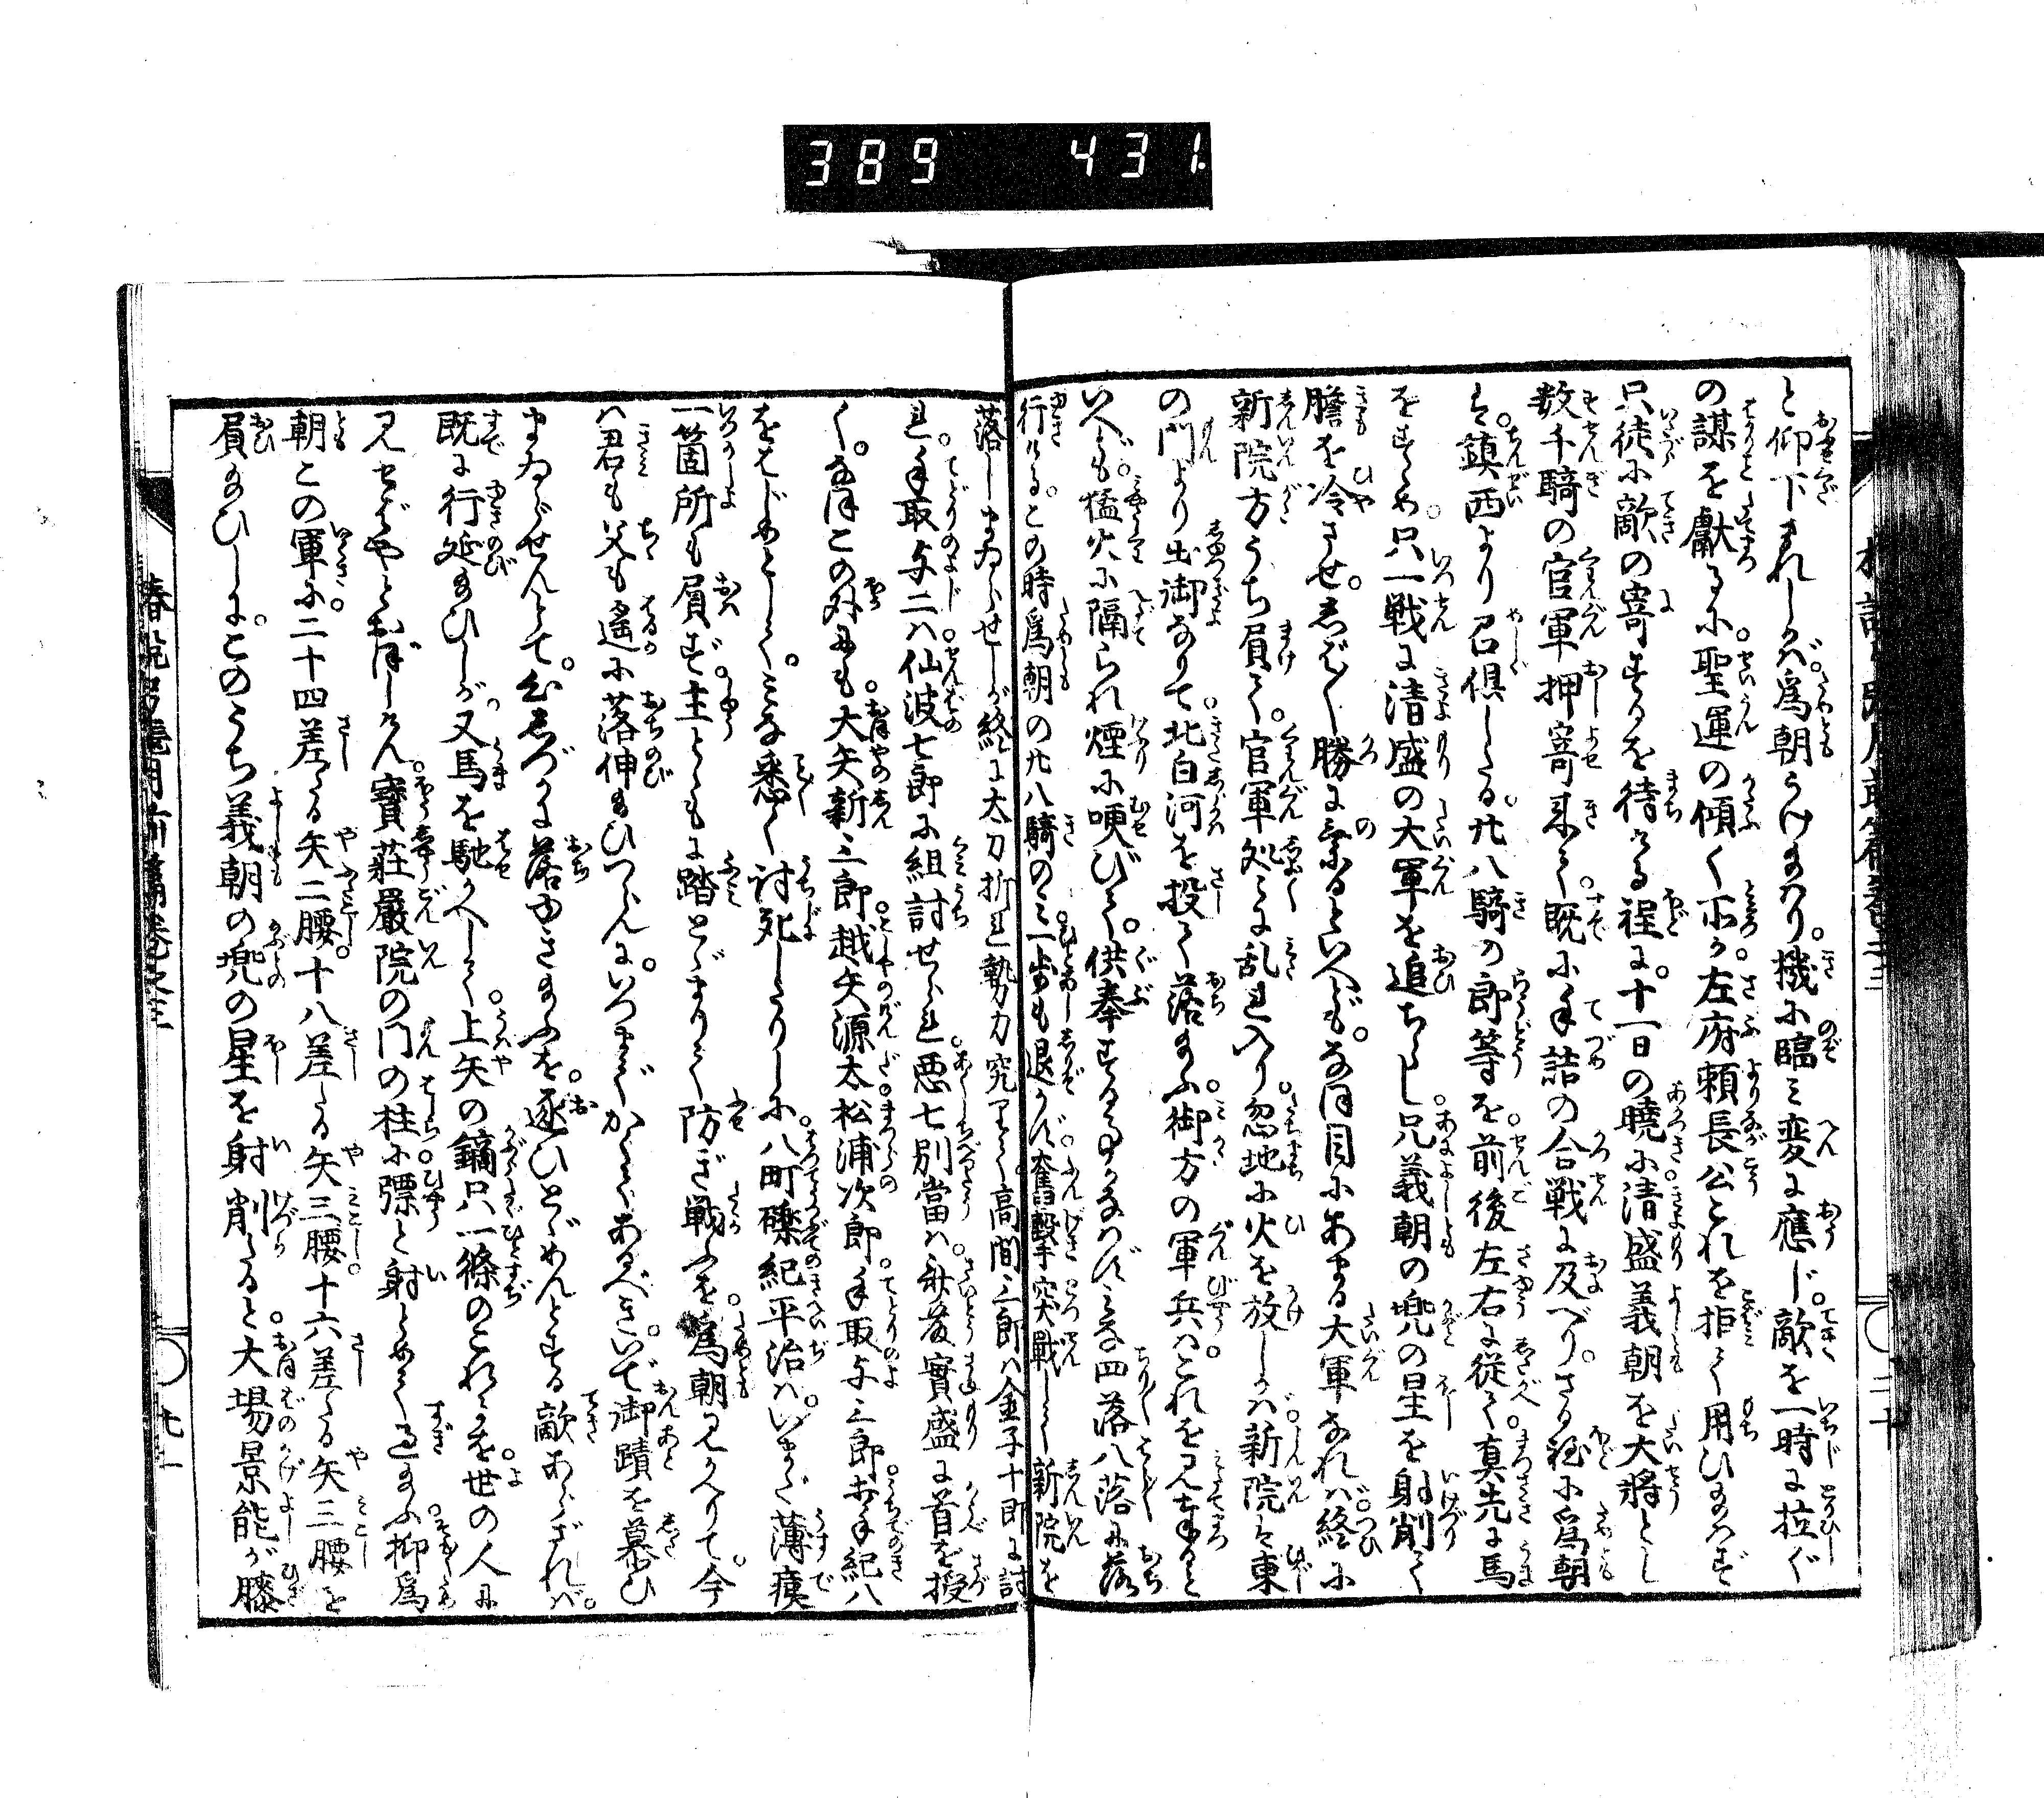 389 431
と仰下されしかば。爲朝うけ給はり。機に臨み変に應じ。敵を一時に拉ぐ
の謀を獻るに。聖運の傾く所か。左府頼長公これを拒て用ひ給はず
只徒に敵の寄するを待ける程に。十一日の曉に清盛義朝を大將とし
数千騎の官軍押寄來て。既に手詰の合戦に及べり。さる程に爲朝
は。鎮西より召倶したる。廿八騎の郎等を。前後左右に従へて。真先に馬
をすゝめ。只一戦に清盛の大軍を追ちらし。兄義朝の兜の星を射削て
膽を冷させ。しばしば勝に乗るといへども。なほ目にあまる大軍なれば。終に
新院方うち負て。官軍処々に乱れ入り。忽地に火を放しかば。新院は東
の門より出御なりて。北白河を投て落給ふ。御方の軍兵はこれを見奉ると
いへども。猛火に隔られ煙に哽びて。供奉する事かなはず。みな四落八落に落
行ける。この時爲朝の廿八騎のみ一歩も退かず。奮撃突戦して新院を
落しまゐらせしが終に太刀折れ勢力究りて。高間三郎は金子十郎に討
れ。手取与二は仙波七郎に組討せられ。悪七別當は斎藤實盛に首を授
く。なほこの外にも。大矢新三郎。越矢源太。松浦次郎。手取与三郎。打手紀八
をはじめとして。みな悉く討死したりしに。八町礫紀平治は。いまだ薄痍
一箇所も負ず。主とゝもに踏とゞまりて防ぎ戦ふを。爲朝見かへりて。今
は君も父も遥に落伸給ひつらんに。いつまでかくてあるべき。いで御蹟を慕ひ
まゐらせんとて。心しづかに落ゆき給ふを。逐ひとゞめんとする敵あらざれば。
既に行延給ひしが。又馬を馳かへして。上矢の鏑只一條のこれるを。世の人に
見せばやとおぼしけん。寳荘嚴院の門の柱に。彪と射とめて過給ふ。抑爲
朝この軍に。二十四差たる矢二腰。十八差たる矢三腰。十六差たる矢三腰を
負給ひしに。このうち義朝の兜の星を射削たると。大場景能が膝
椿説弓張月前篇巻之三